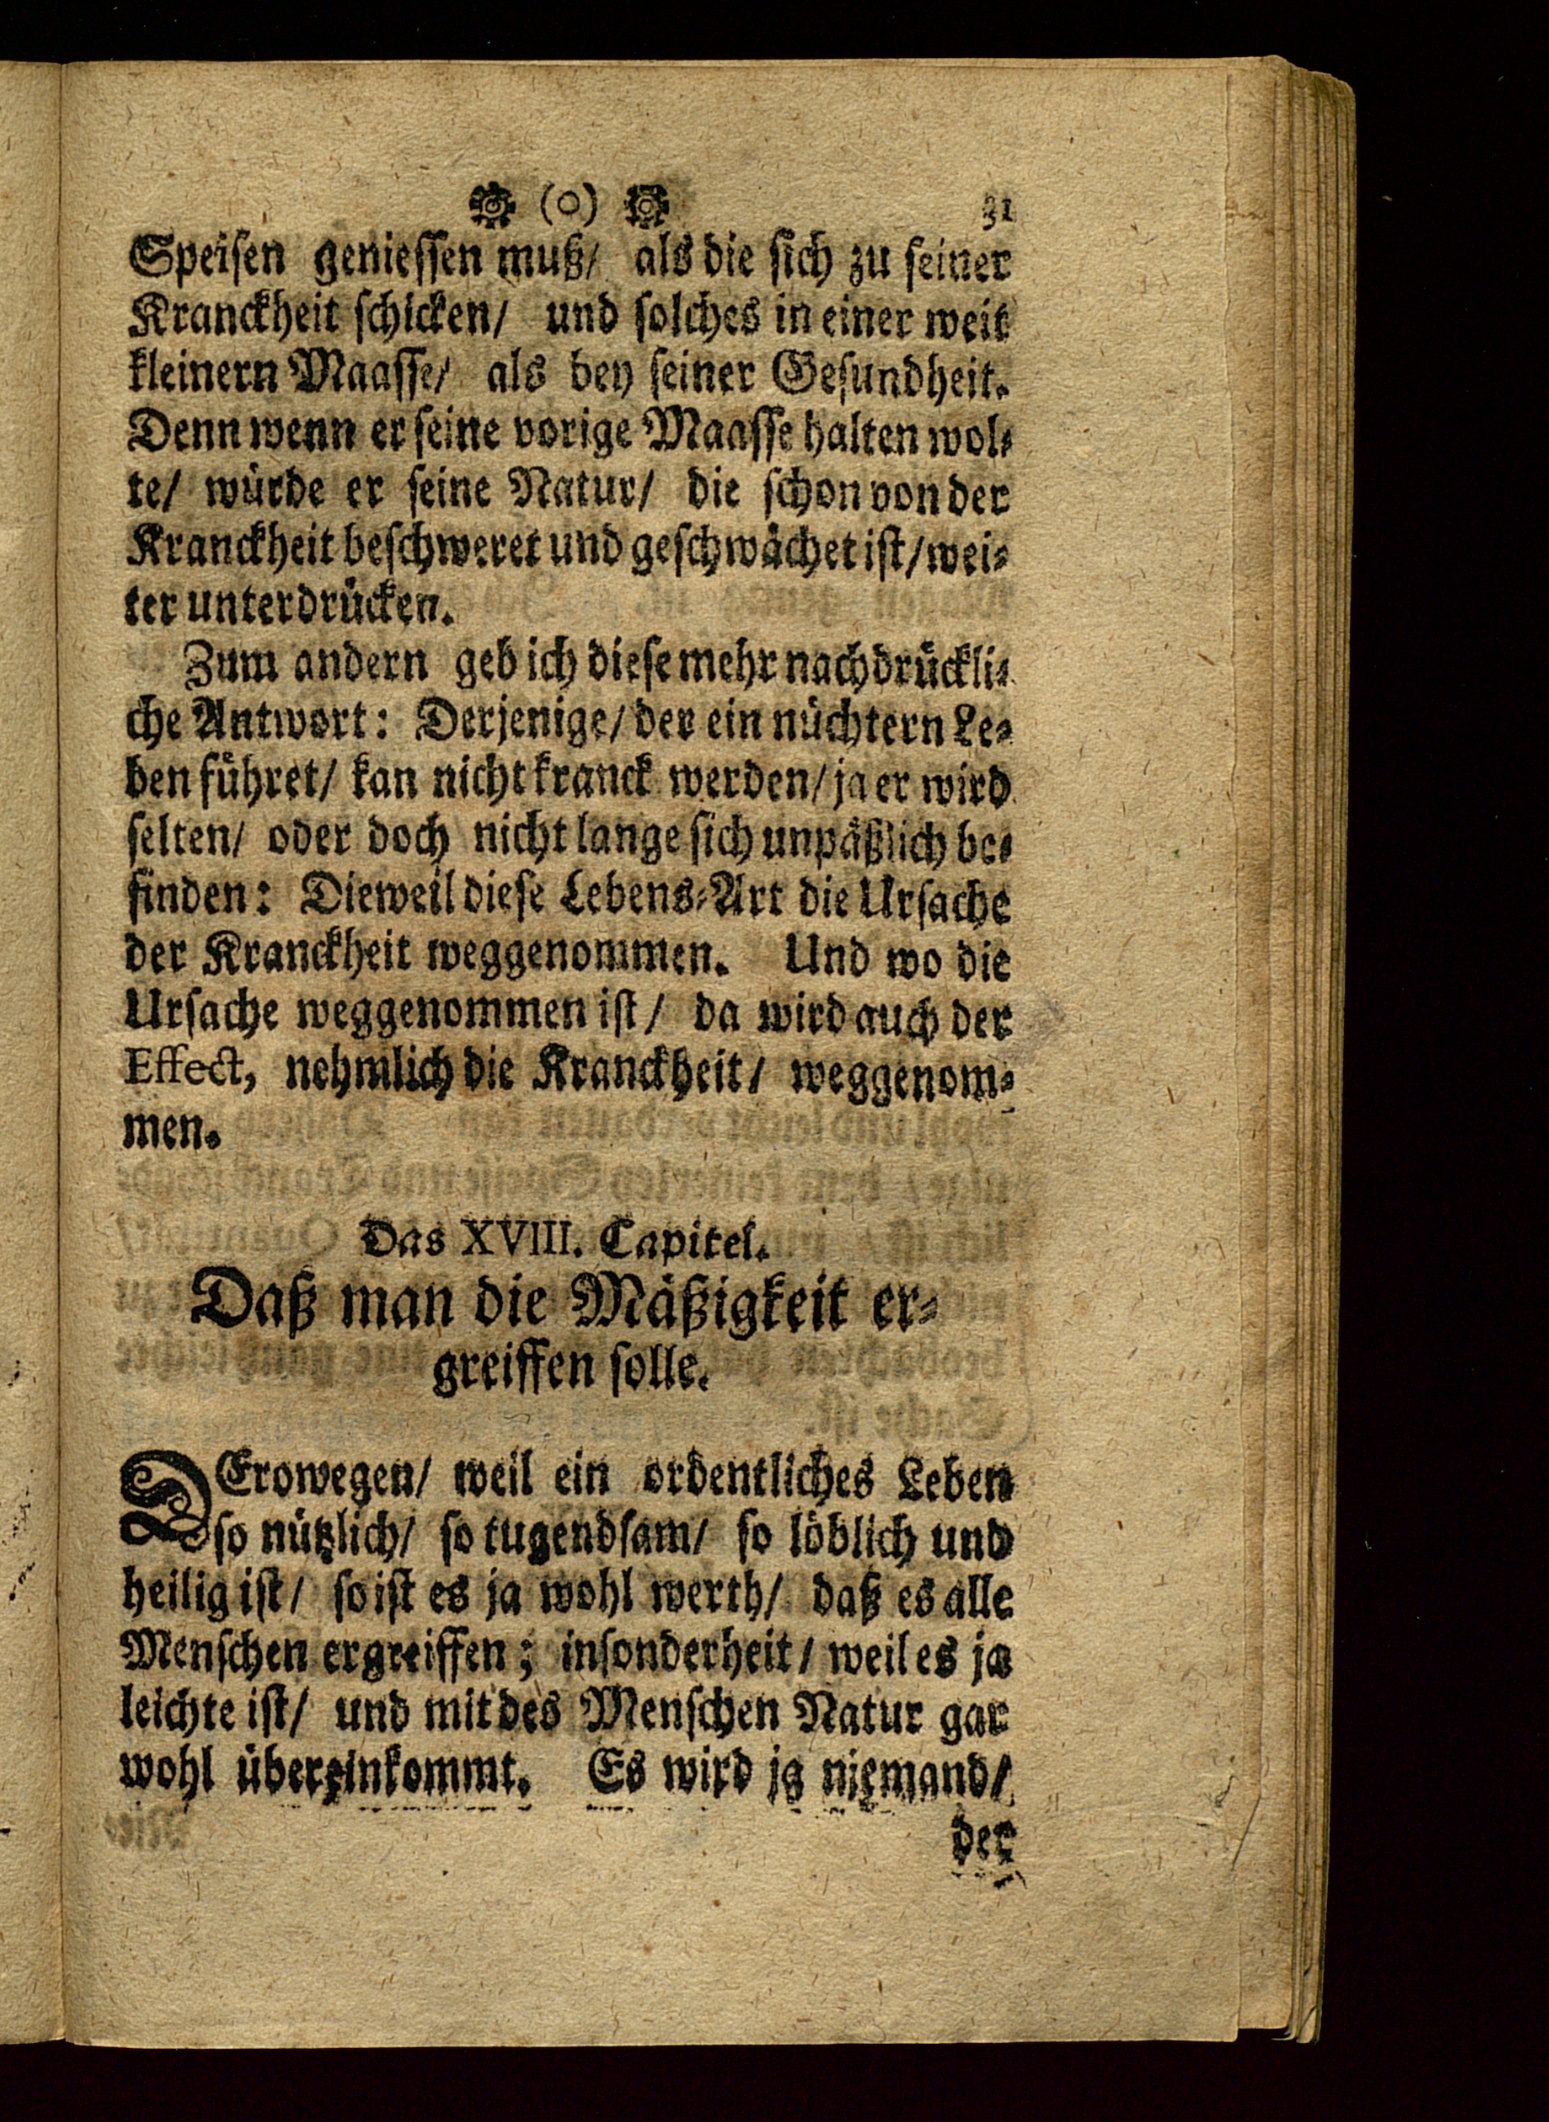 (o) 31
Speisen geniessen muß/ als die sich zu seiner
Kranckheit schicken/ und solches in einer weit
kleinern Maasse/ als bey seiner Gesundheit.
Denn wenn er seine vorige Maasse halten wol-
te/ würde er seine Natur/ die schon von der
Kranckheit beschweret und geschwächet ist/ wei-
ter unterdrücken.
Zum andern geb ich diese mehr nachdrückli-
che Antwort: Derjenige/ der ein nüchtern Le-
ben führet/ kan nicht kranck werden/ ja er wird
selten/ oder doch nicht lange sich unpäßlich be-
finden: Dieweil diese Lebens-Art die Ursache
der Kranckheit weggenommen. Und wo die
Ursache weggenommen ist/ da wird auch der
Effect, nehmlich die Kranckheit/ weggenom-
men.
Das XVIII. Capitel.
Daß man die Mäßigkeit er-
greiffen solle.
DErowegen/ weil ein ordentliches Leben
so nützlich/ so tugendsam/ so löblich und
heilig ist/ so ist es ja wohl werth/ daß es alle
Menschen ergreiffen; insonderheit/ weil es ja
leichte ist/ und mit des Menschen Natur gar
wohl übereinkommt. Es wird ja niemand/
der